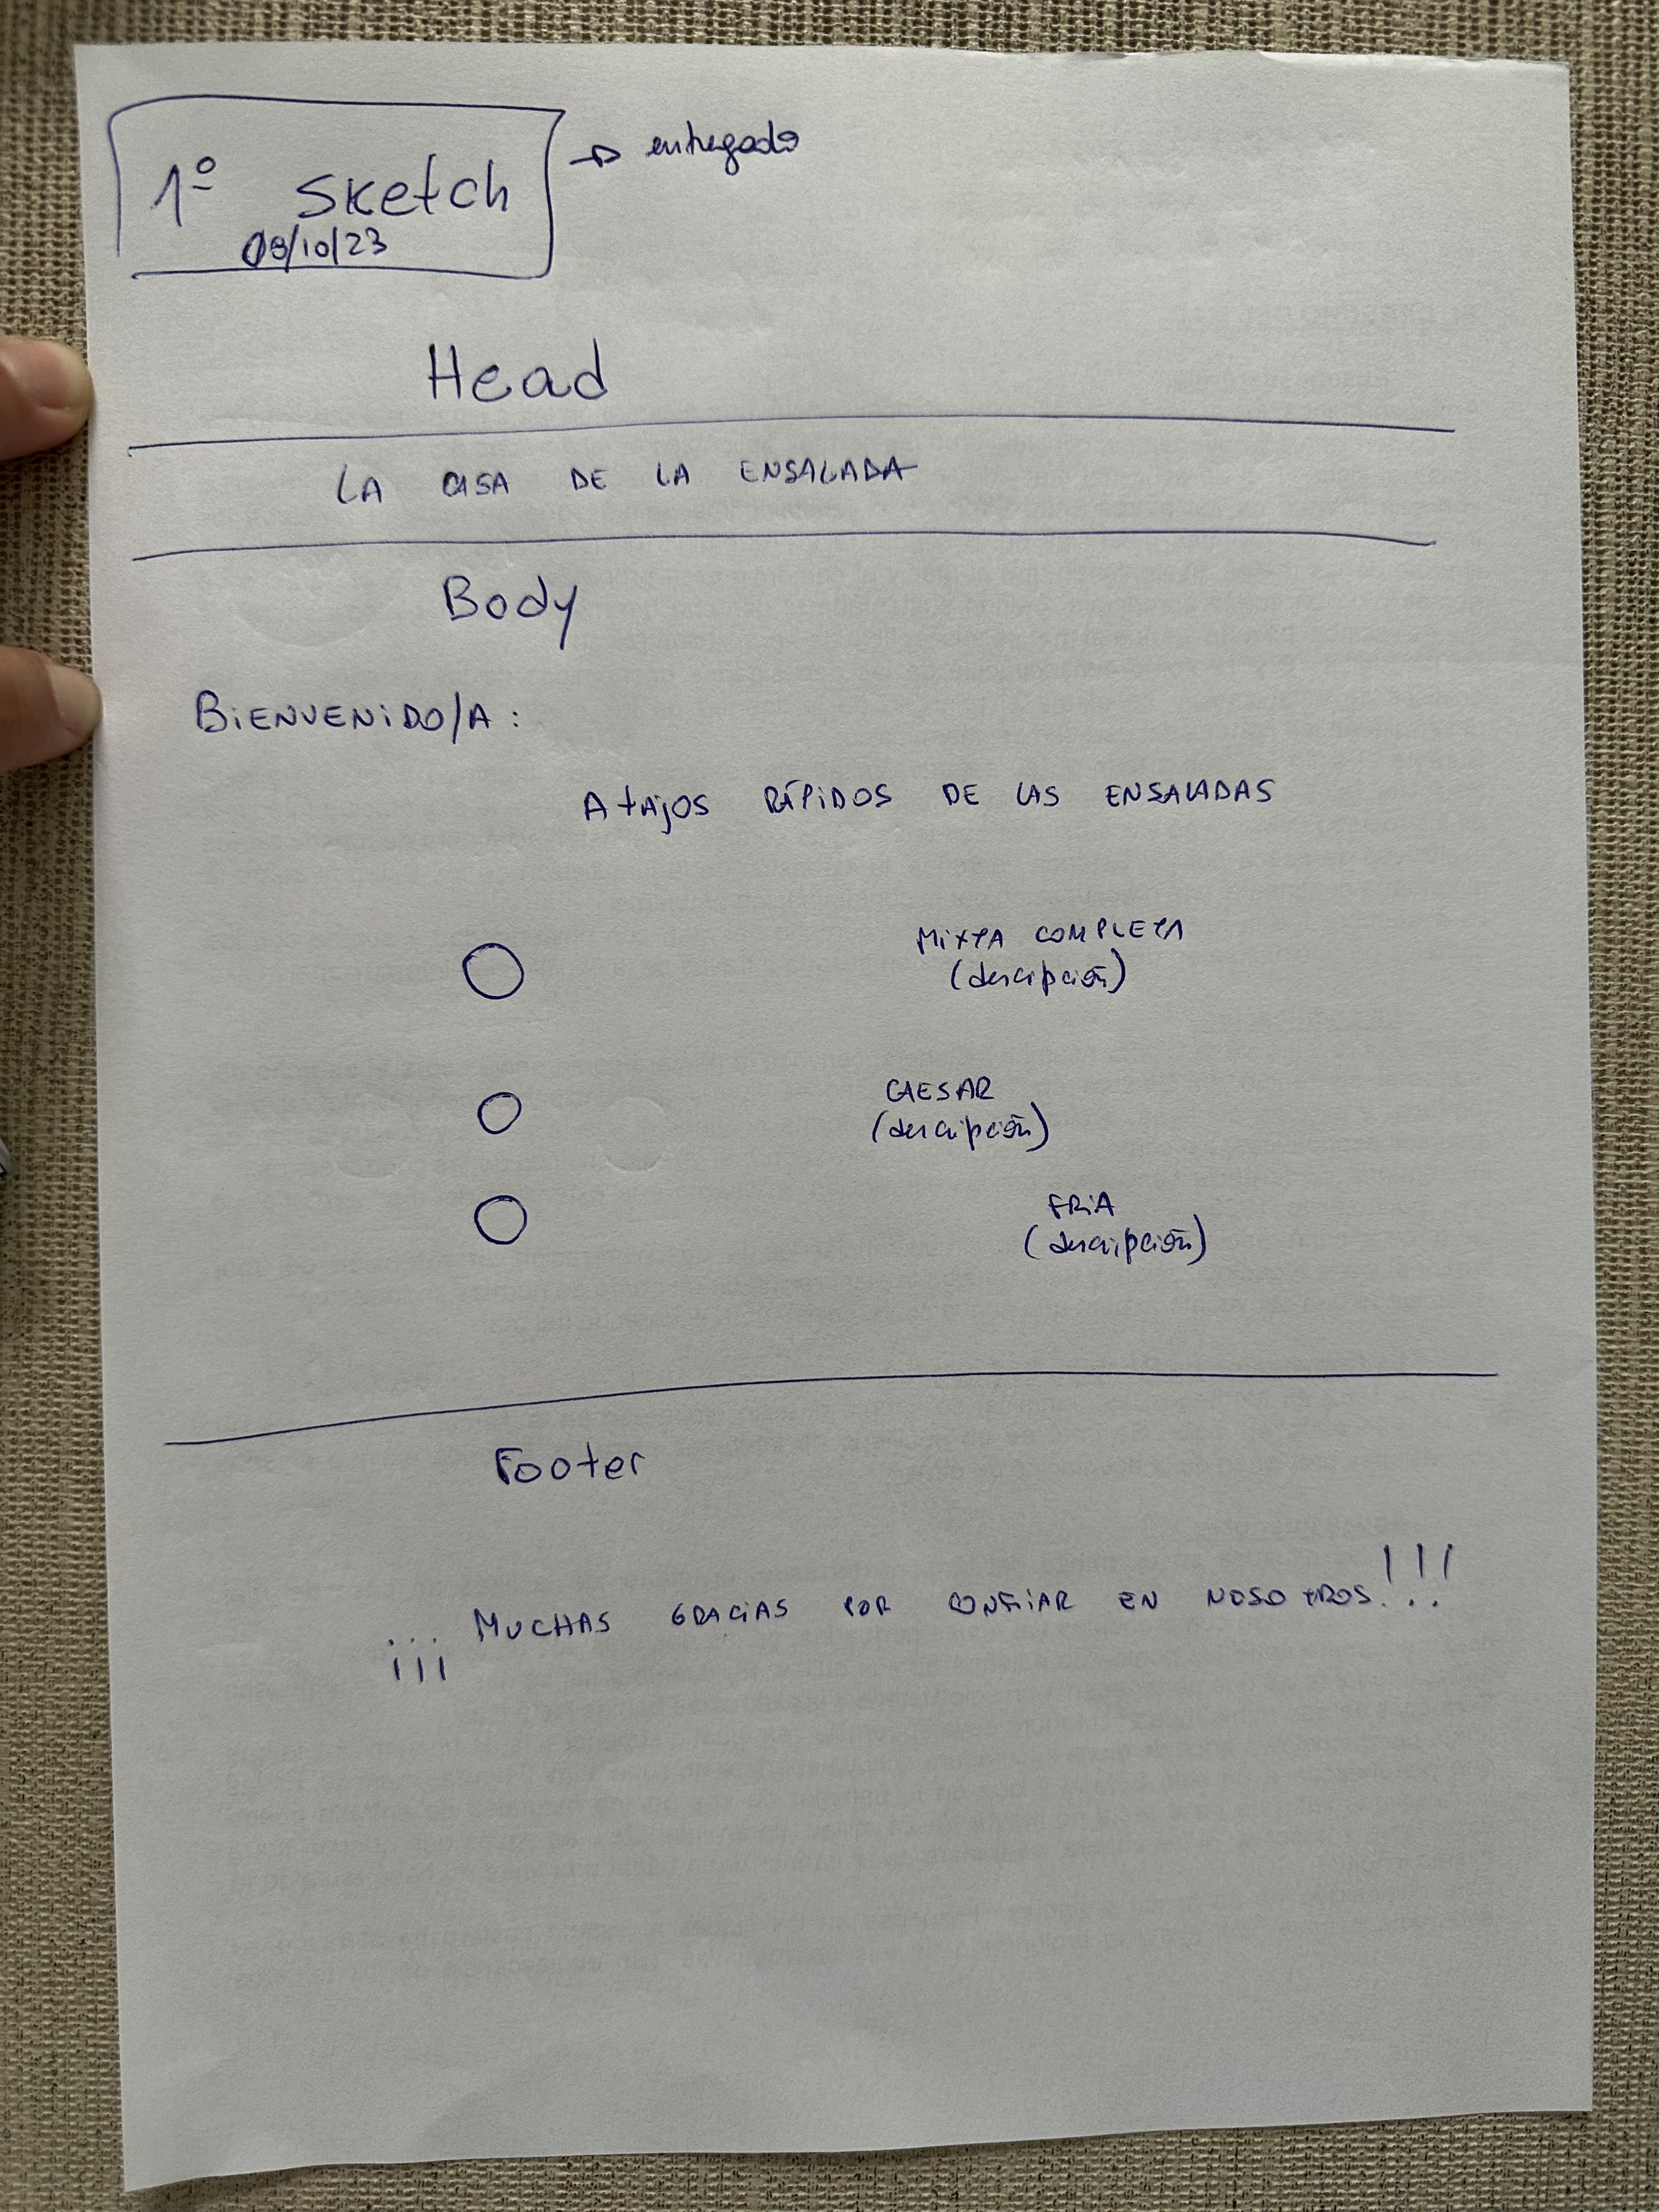 1º sketch → entregado
09/10/23
Head
LA CASA DE LA ENSALADA
Body
BIENVENIDO/A:
ATAJOS RÁPIDOS DE LAS ENSALADAS
MIXTA COMPLETA
(descipción)
CAESAR
(descipción)
FRIA
(descripción)
Footer
¡¡¡ MUCHAS GRACIAS POR CONFIAR EN NOSOTROS!!!